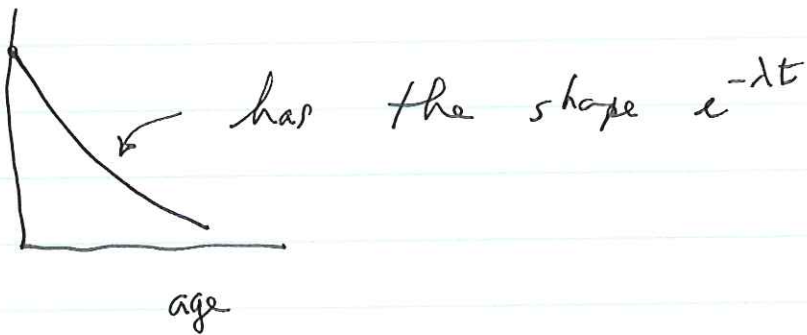 has the shape e^{-λt}
age